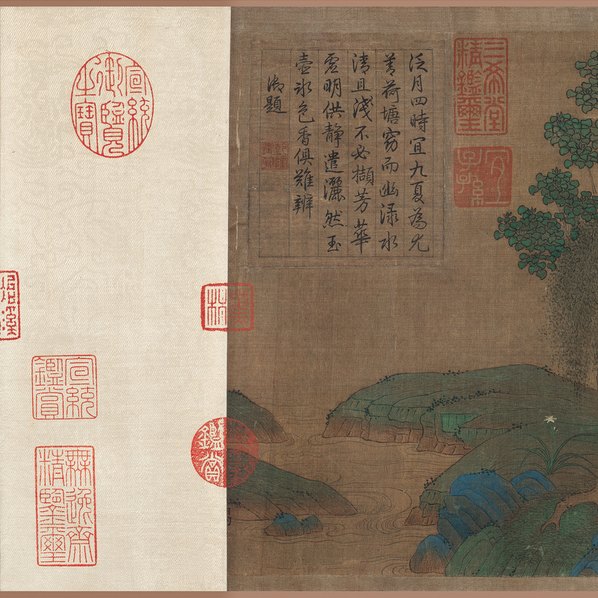 三希堂精鑑璽
宜子孫
泛月四時宜九夏為尤
善荷塘窈而幽渌水
清且淺不必擷芳華
虛明供靜遣灑然玉
壺冰色香俱難辨
御題
鑑賞
宣統御覽之寶
宣統鑑賞
無逸齋精鑑璽